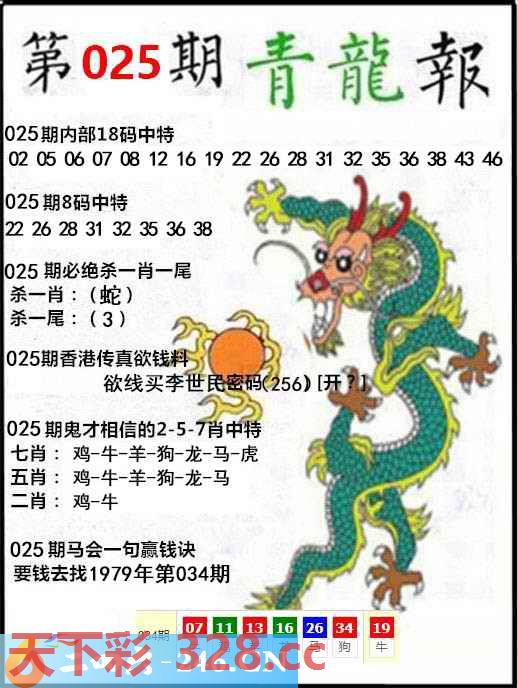 第025期青龍報
025期内部18码中特
02 05 06 07 08 12 16 19 22 26 28 31 32 35 36 38 43 46
025期8码中特
22 26 28 31 32 35 36 38
025期必绝杀一肖一尾
杀一肖：（蛇）
杀一尾：（3）
025期香港传真欲钱料
欲线买李世民密码(256)[开?]
025期鬼才相信的2-5-7肖中特
七肖：鸡-牛-羊-狗-龙-马-虎
五肖：鸡-牛-羊-狗-龙-马
二肖：鸡-牛
025期马会一句赢钱诀
要钱去找1979年第034期
034期 07 11 13 16 26 34 19
马 狗 牛
天下彩-328.cc